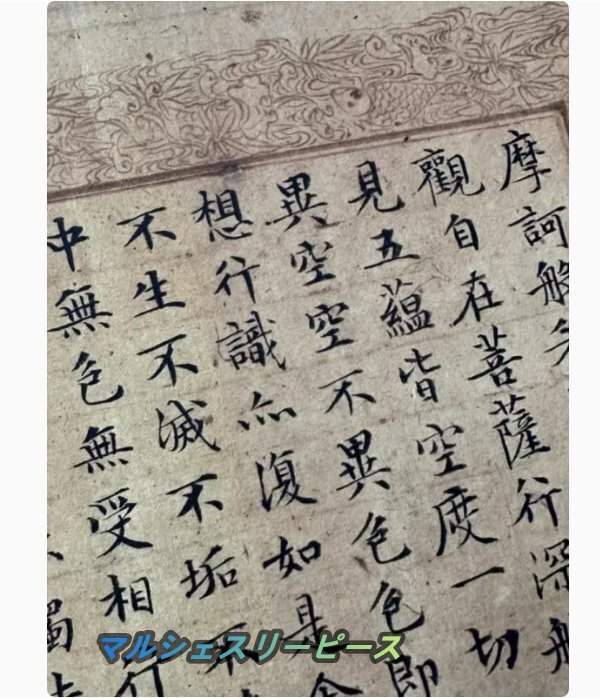 摩訶般
觀自在菩薩行深般
見五蘊皆空度一切
異空空不異色色即
想行識亦復如是舍
不生不滅不垢不
中無色無受想行
觸
マルシェスリーピース